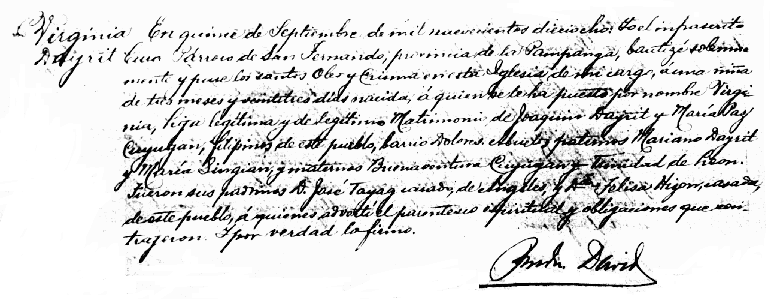 Virginia En quince de Septiembre de mil nuevecientos dieciocho: Yo el infrascrito
Dayrit Cura Párroco de San Fernando, provincia de la Pampanga, bautizé solemne
mente y puse los santos Oleo y Crisma en esta Iglesia de mi cargo, á una niña
de tres meses y veintitres dias nacida, á quien se le ha puesto por nombre Virgi-
nia, hija legítima y de legítimo Matrimonio de Joaquin Dayrit y María Paz
Cuyugan, filipinos de este pueblo, barrio Dolores. Abuelos paternos Mariano Dayrit
y María Singian, y maternos Buenaventura Cuyugan y Trinidad de Leon.
Fueron sus padrinos D. José Tayag casado, de Angeles, y Dª Felisa Hizon, casada,
de este pueblo, á quienes advertí el parentesco espiritual y obligaciones que con-
trajeron. Y por verdad lo firmo.
David